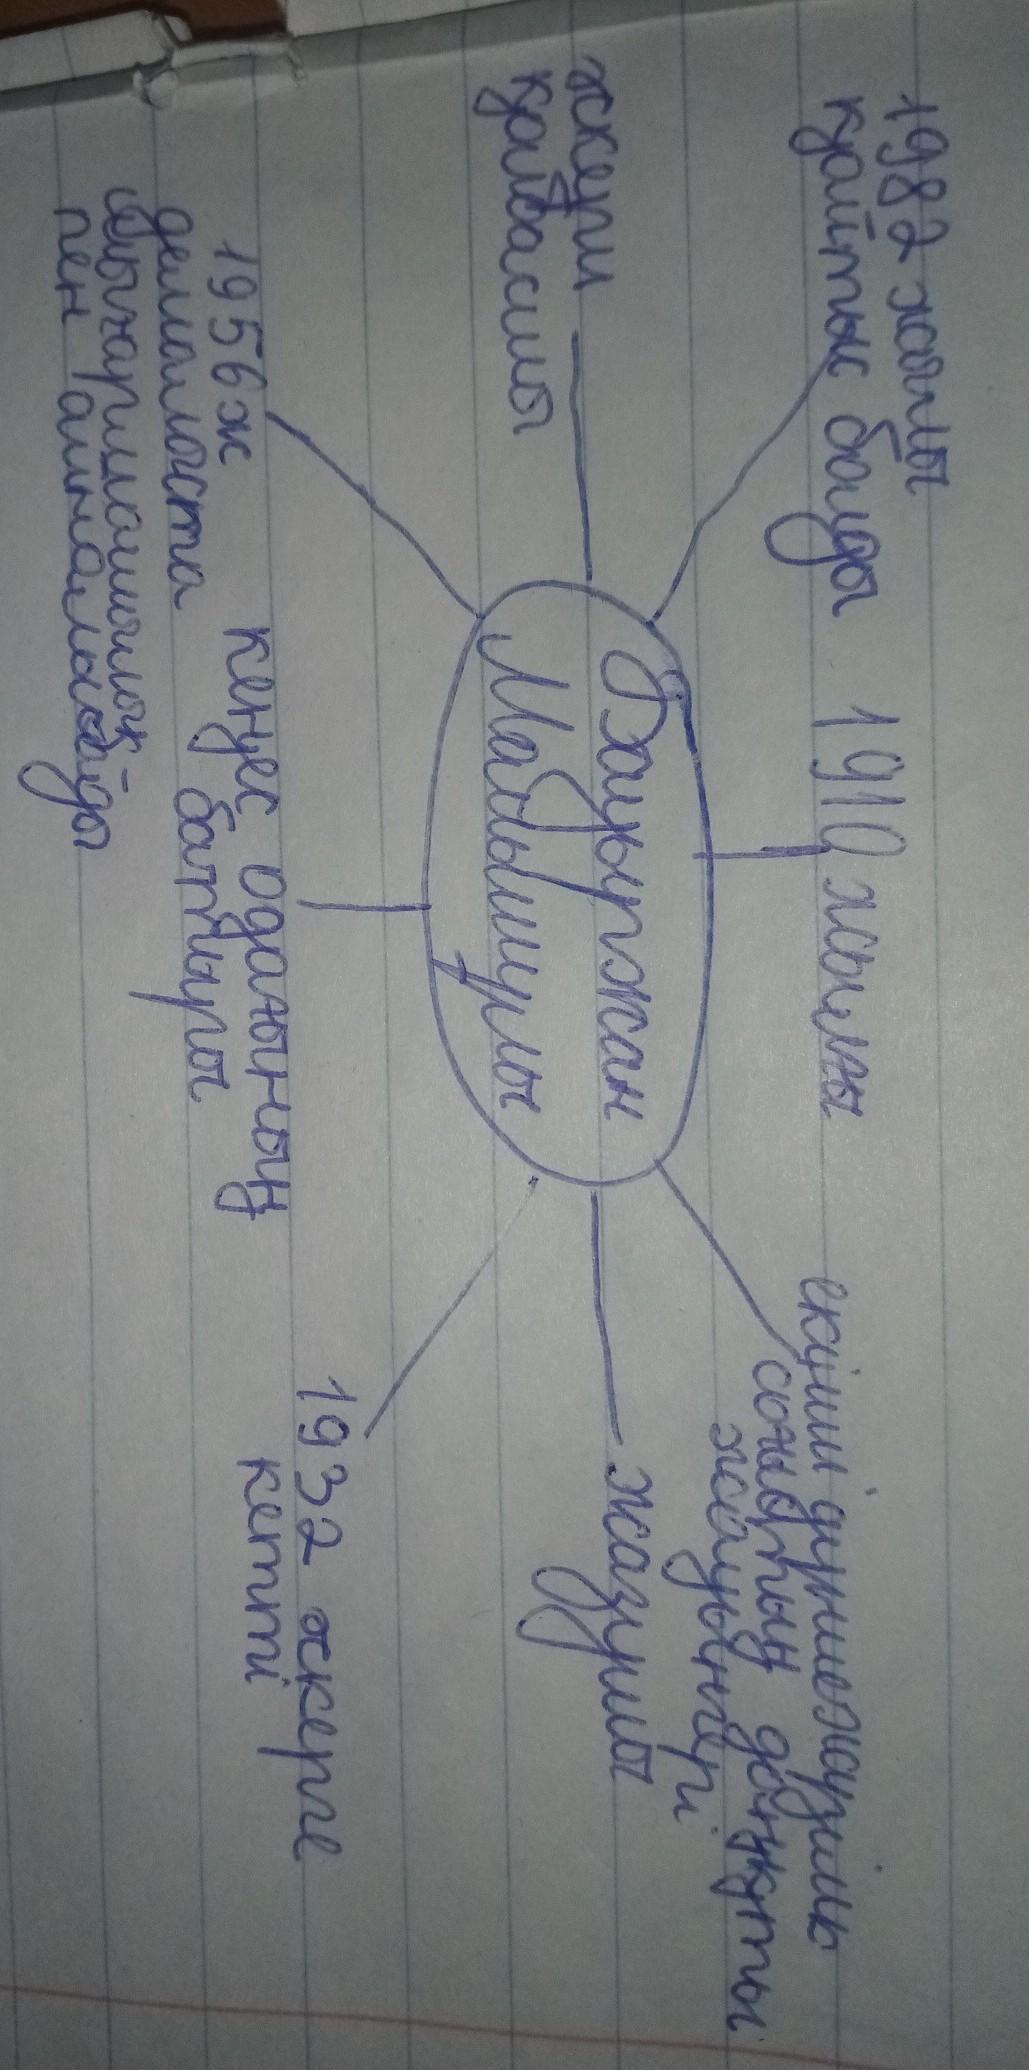 1982 жылы
қайтыс болды
1910 жылы
екінші дүниежүзілік
соғыстың даңқты
жауынгері
әскери
қолбасшы
Бауыржан
Момышұлы
жазушы
1956ж
демалыста
шығармашылық
пен айналысады
кеңес одағының
батыры
1932 әскерге
кетті